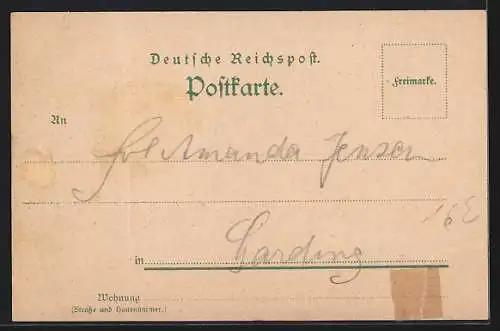 Deutsche Reichspost.
Postkarte.
Freimarke.
An
Frl Amanda Jensen
16 £
in Garding
Wohnung
(Straße und Hausnummer.)